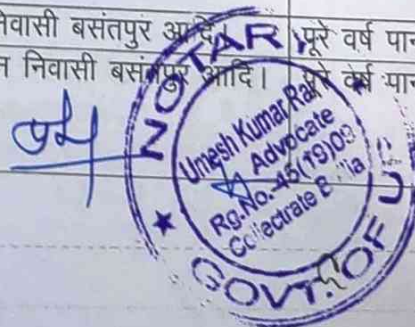 निवासी बसंतपुर आदि। पूरे वर्ष
न निवासी बसंतपुर आदि। पूरे वर्ष
NOTARY
Umesh Kumar Rai
Advocate
Rg.No.-45(19)09
Collectrate
GOVT. OF U